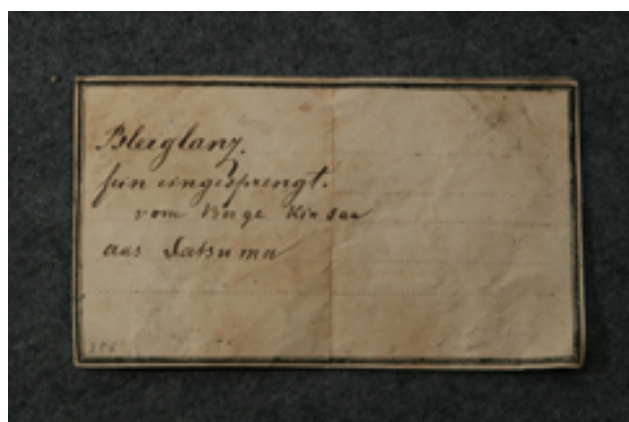 Bleiglanz.
fein eingesprengt.
vom Berge Kinsan
aus Satsuma